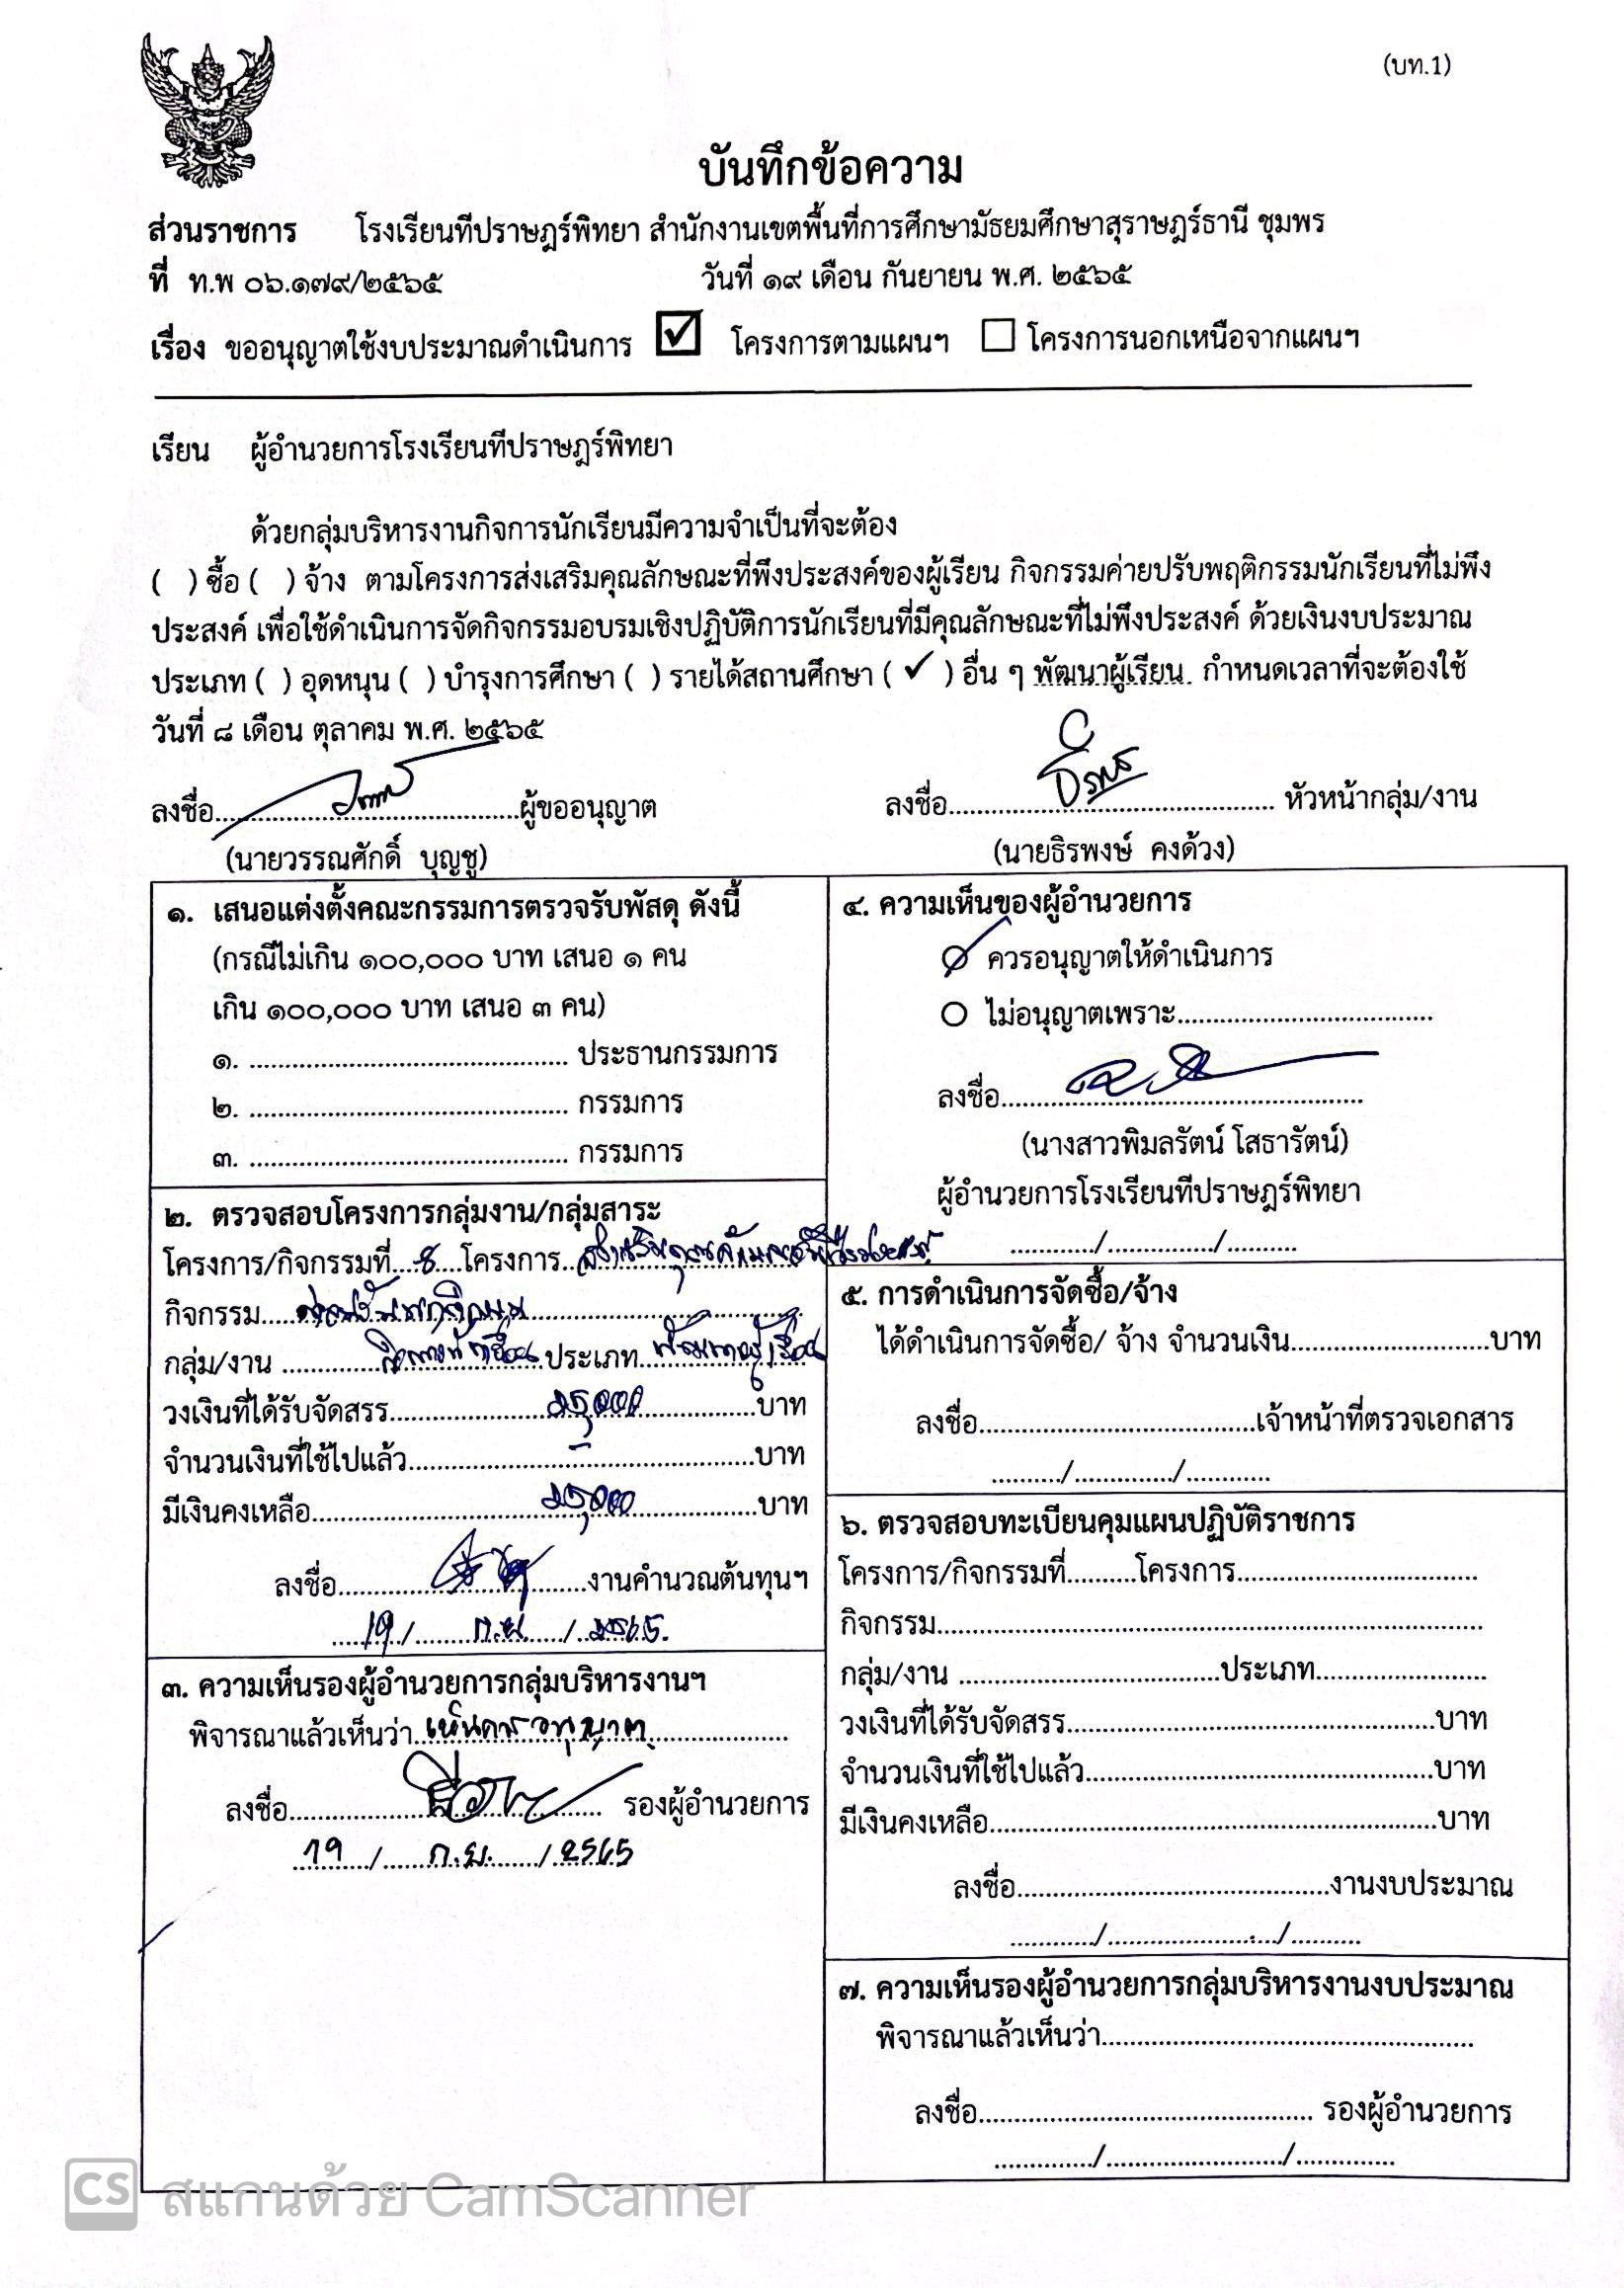 (บท.1)
บันทึกข้อความ
ส่วนราชการ โรงเรียนทีปราษฎร์พิทยา สำนักงานเขตพื้นที่การศึกษามัธยมศึกษาสุราษฎร์ธานี ชุมพร
ที่ ท.พ ๐๖.๑๗๙/๒๕๖๕ วันที่ ๑๙ เดือน กันยายน พ.ศ. ๒๕๖๕
เรื่อง ขออนุญาตใช้งบประมาณดำเนินการ ☑ โครงการตามแผนฯ ☐ โครงการนอกเหนือจากแผนฯ
เรียน ผู้อำนวยการโรงเรียนทีปราษฎร์พิทยา
ด้วยกลุ่มบริหารงานกิจการนักเรียนมีความจำเป็นที่จะต้อง
( ) ซื้อ ( ) จ้าง ตามโครงการส่งเสริมคุณลักษณะที่พึงประสงค์ของผู้เรียน กิจกรรมค่ายปรับพฤติกรรมนักเรียนที่ไม่พึง
ประสงค์ เพื่อใช้ดำเนินการจัดกิจกรรมอบรมเชิงปฏิบัติการนักเรียนที่มีคุณลักษณะที่ไม่พึงประสงค์ ด้วยเงินงบประมาณ
ประเภท ( ) อุดหนุน ( ) บำรุงการศึกษา ( ) รายได้สถานศึกษา ( ✓ ) อื่น ๆ พัฒนาผู้เรียน. กำหนดเวลาที่จะต้องใช้
วันที่ ๘ เดือน ตุลาคม พ.ศ. ๒๕๖๕
ลงชื่อ..........ผู้ขออนุญาต ลงชื่อ.......... หัวหน้ากลุ่ม/งาน
(นายวรรณศักดิ์ บุญชู) (นายธิรพงษ์ คงด้วง)
๑. เสนอแต่งตั้งคณะกรรมการตรวจรับพัสดุ ดังนี้
(กรณีไม่เกิน ๑๐๐,๐๐๐ บาท เสนอ ๑ คน
เกิน ๑๐๐,๐๐๐ บาท เสนอ ๓ คน)
๑. .......... ประธานกรรมการ
๒. .......... กรรมการ
๓. .......... กรรมการ
๒. ตรวจสอบโครงการกลุ่มงาน/กลุ่มสาระ
โครงการ/กิจกรรมที่..8..โครงการ..ส่งเสริมคุณลักษณะอันพึงประสงค์
กิจกรรม..ค่ายปรับพฤติกรรม
กลุ่ม/งาน ..กิจการนักเรียน ประเภท..พัฒนาผู้เรียน
วงเงินที่ได้รับจัดสรร..25,000..บาท
จำนวนเงินที่ใช้ไปแล้ว..-..บาท
มีเงินคงเหลือ..25,000..บาท
ลงชื่อ..........งานคำนวณต้นทุนฯ
19 / ก.ย. / 2565.
๓. ความเห็นรองผู้อำนวยการกลุ่มบริหารงานฯ
พิจารณาแล้วเห็นว่า..เห็นควรอนุญาต
ลงชื่อ.......... รองผู้อำนวยการ
19 / ก.ย. / 2565
๔. ความเห็นของผู้อำนวยการ
ควรอนุญาตให้ดำเนินการ
ไม่อนุญาตเพราะ..........
ลงชื่อ..........
(นางสาวพิมลรัตน์ โสธารัตน์)
ผู้อำนวยการโรงเรียนทีปราษฎร์พิทยา
........../........../..........
๕. การดำเนินการจัดซื้อ/จ้าง
ได้ดำเนินการจัดซื้อ/ จ้าง จำนวนเงิน..........บาท
ลงชื่อ..........เจ้าหน้าที่ตรวจเอกสาร
........../........../..........
๖. ตรวจสอบทะเบียนคุมแผนปฏิบัติราชการ
โครงการ/กิจกรรมที่..........โครงการ..........
กิจกรรม..........
กลุ่ม/งาน ..........ประเภท..........
วงเงินที่ได้รับจัดสรร..........บาท
จำนวนเงินที่ใช้ไปแล้ว..........บาท
มีเงินคงเหลือ..........บาท
ลงชื่อ..........งานงบประมาณ
........../........../..........
๗. ความเห็นรองผู้อำนวยการกลุ่มบริหารงานงบประมาณ
พิจารณาแล้วเห็นว่า..........
ลงชื่อ.......... รองผู้อำนวยการ
........../........../..........
CS สแกนด้วย CamScanner